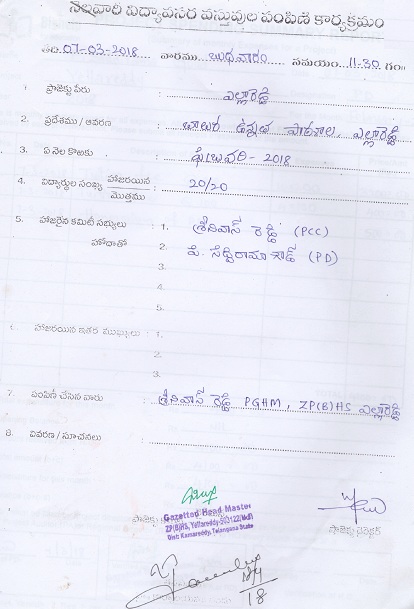 నెలవారి విద్యాపసర వస్తువుల పంపిణి కార్యక్రమం
తేది. 07-03-2018 వారము బుధవారం సమయం. 11-30 గం
1. ప్రాజెక్టు పేరు : ఎల్లారెడ్డి
2. ప్రదేశము / ఆవరణ : బాలుర ఉన్నత పాఠశాల, ఎల్లారెడ్డి
3. ఏ నెల కొఱకు : ఫిబ్రవరి - 2018
4. విద్యార్థుల సంఖ్య హాజరయిన / మొత్తము : 20/20
5. హాజరైన కమిటీ సభ్యులు : 1. శ్రీనివాస్ రెడ్డి (PCC)
హోదాతో 2. పి. సత్యిరామా గౌడ్ (PD)
3.
4.
5.
6. హాజరయిన ఇతర ముఖ్యులు : 1.
2.
3.
7. పంపిణీ చేసిన వారు : శ్రీనివాస్ రెడ్డి PGHM, ZP(B)HS ఎల్లారెడ్డి
8. వివరణ / సూచనలు :
Gazetted Head Master
ZP(B)HS, Yellareddy-503122(Mdl)
Dist: Kamareddy, Telangana State
ప్రాజెక్టు డైరెక్టర్
18/4
18